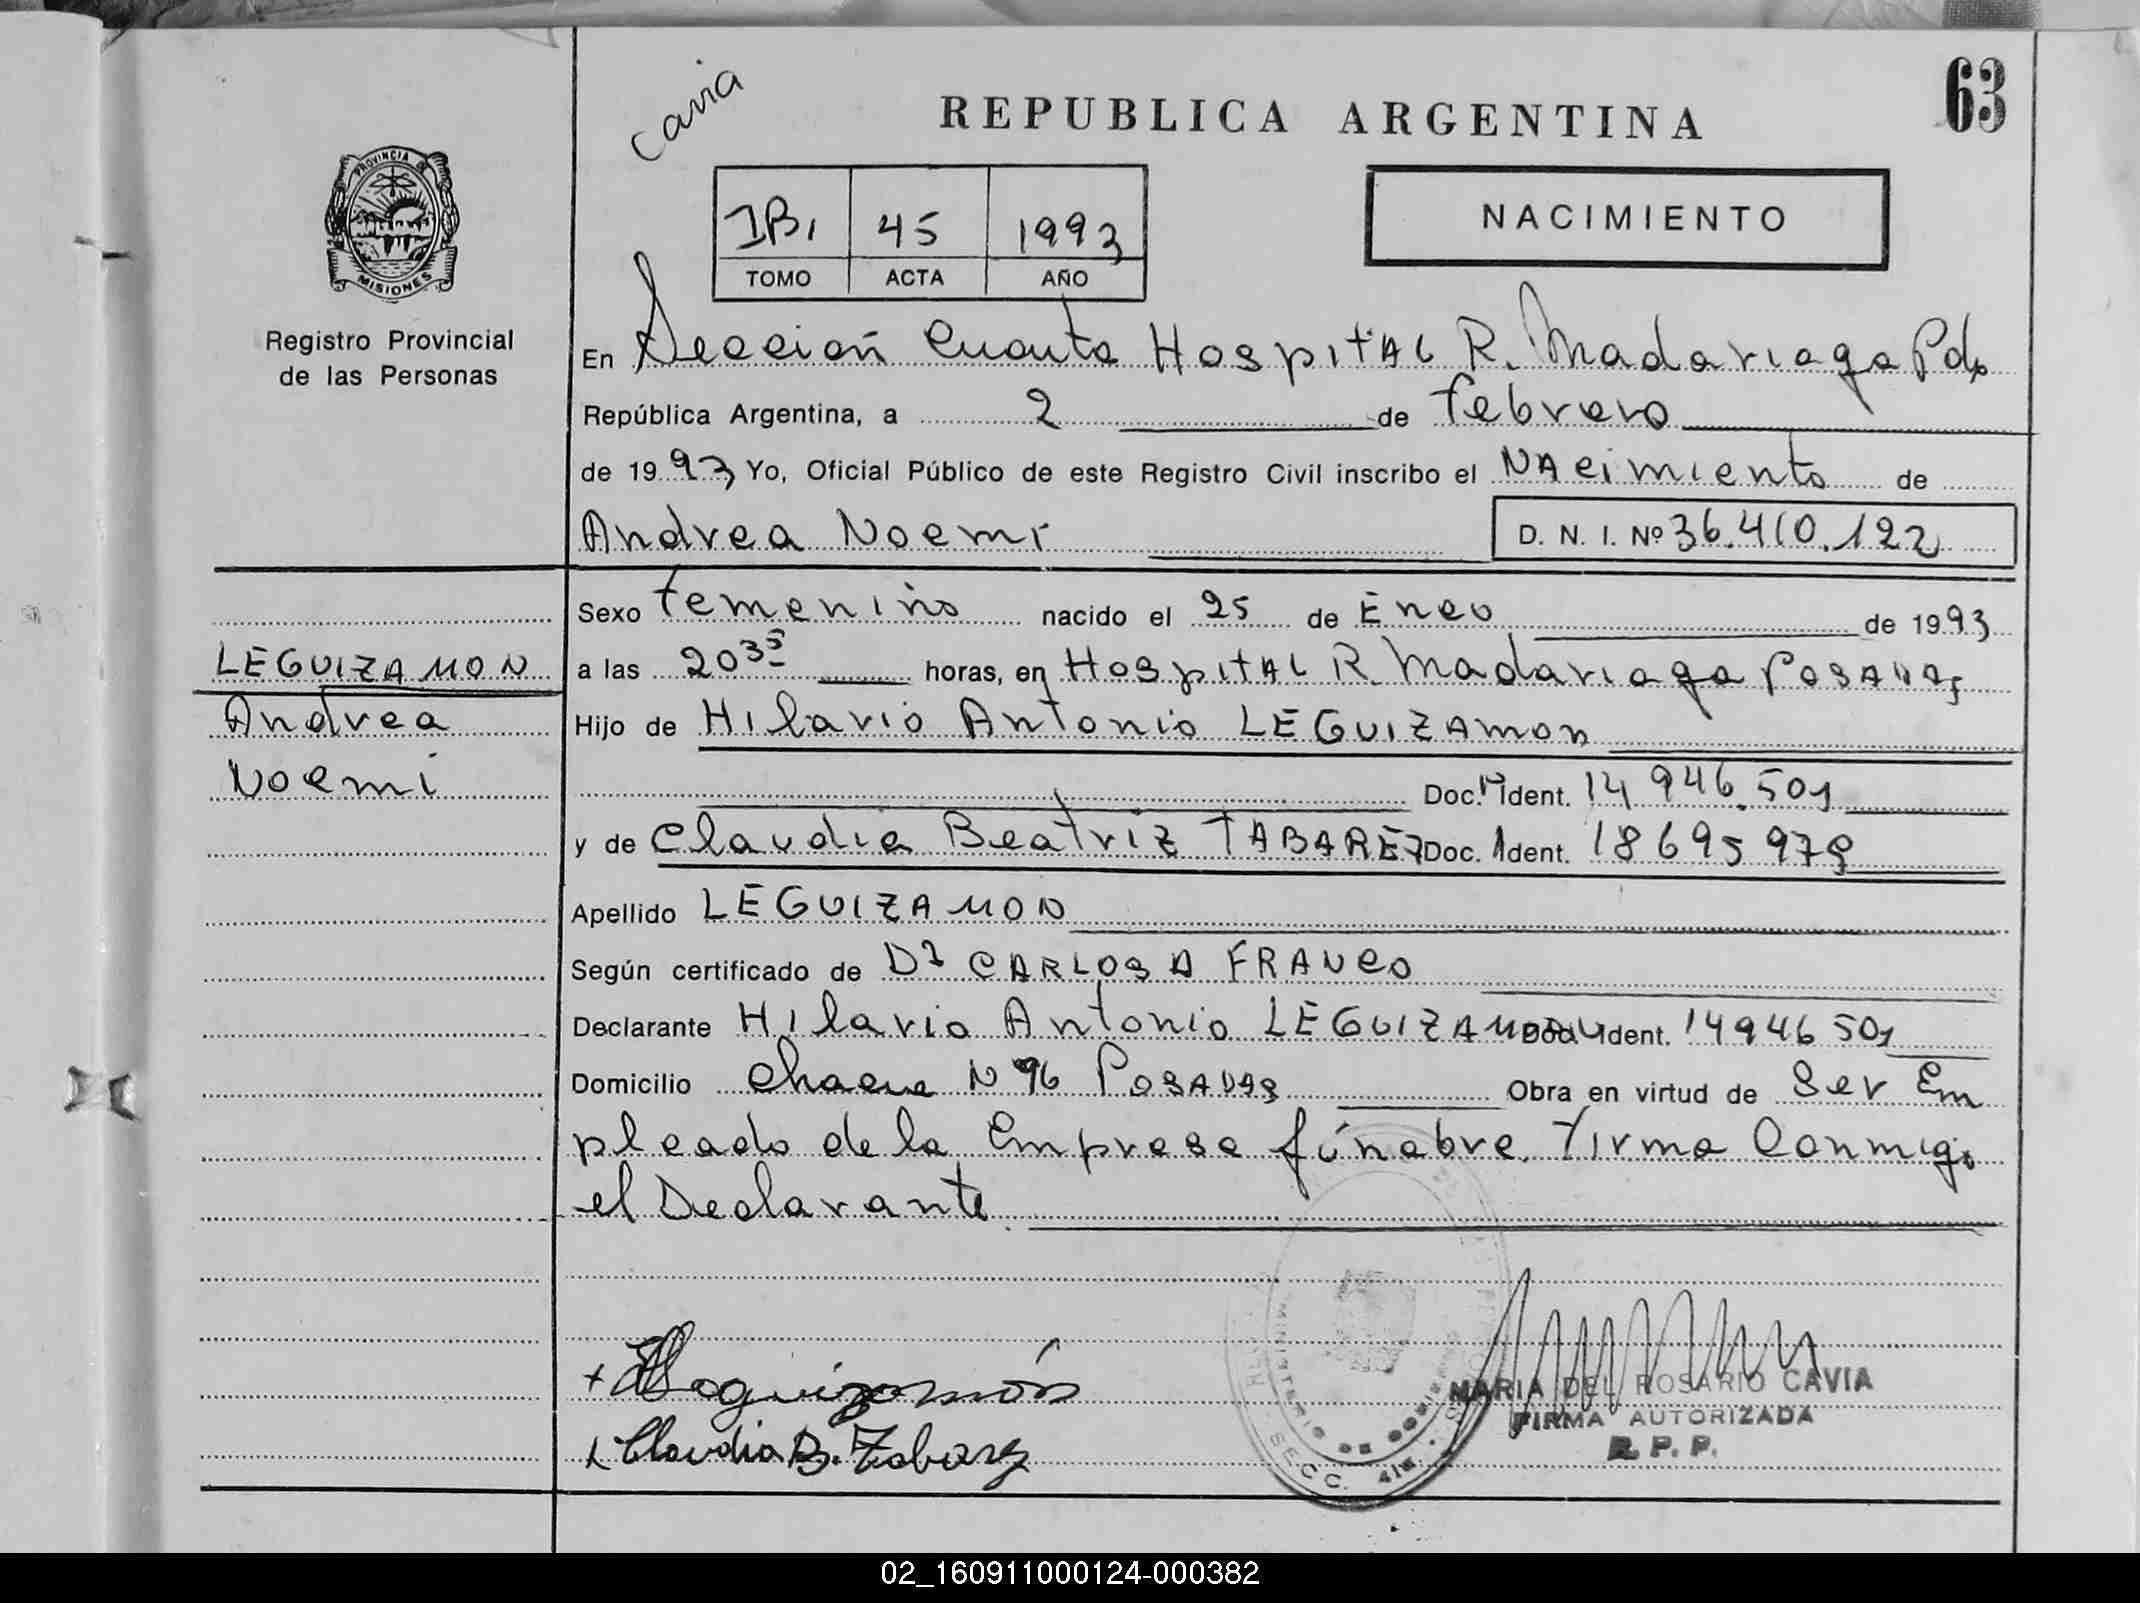 63
Cavia
REPUBLICA ARGENTINA
PROVINCIA DE
MISIONES
Registro Provincial
de las Personas
IB1 45 1993
TOMO ACTA AÑO
NACIMIENTO
En Sección Cuarta Hospital R. Madariaga Pdas
República Argentina, a 2 de febrero
de 1993 Yo, Oficial Público de este Registro Civil inscribo el NAcimiento de
Andrea Noemi D. N. I. Nº 36.410.122
Sexo femenino nacido el 25 de Eneo de 1993
a las 20 35 horas, en HospitAL R. Madariaga POSADAS
Hijo de Hilario Antonio LEGUIZAMON
Doc. Ident. 14 946.501
y de Claudia Beatriz TABAREZ Doc. Ident. 18695978
Apellido LEGUIZAMON
Según certificado de Dr CARLOS A FRANCO
Declarante Hilario Antonio LEGUIZAMON Doc. Ident. 14946501
Domicilio Chacra N 96 POSADAS Obra en virtud de Ser Em
pleado de la Empresa fúnebre. Firma Conmigo
el Declarante
LEGUIZAMON
Andrea
Noemi
+ Leguizamón
x Claudia B. Tabarez
SECC. 4
MARIA DEL ROSARIO CAVIA
FIRMA AUTORIZADA
R. P. P.
02_160911000124-000382